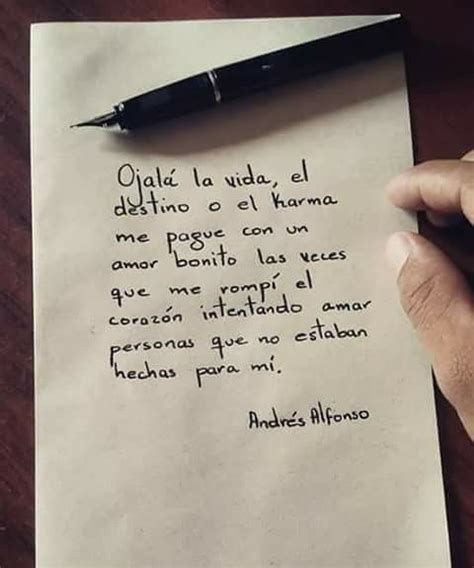 Ojalá la vida, el
destino o el karma
me pague con un
amor bonito las veces
que me rompí el
corazón intentando amar
personas que no estaban
hechas para mí.
Andrés Alfonso